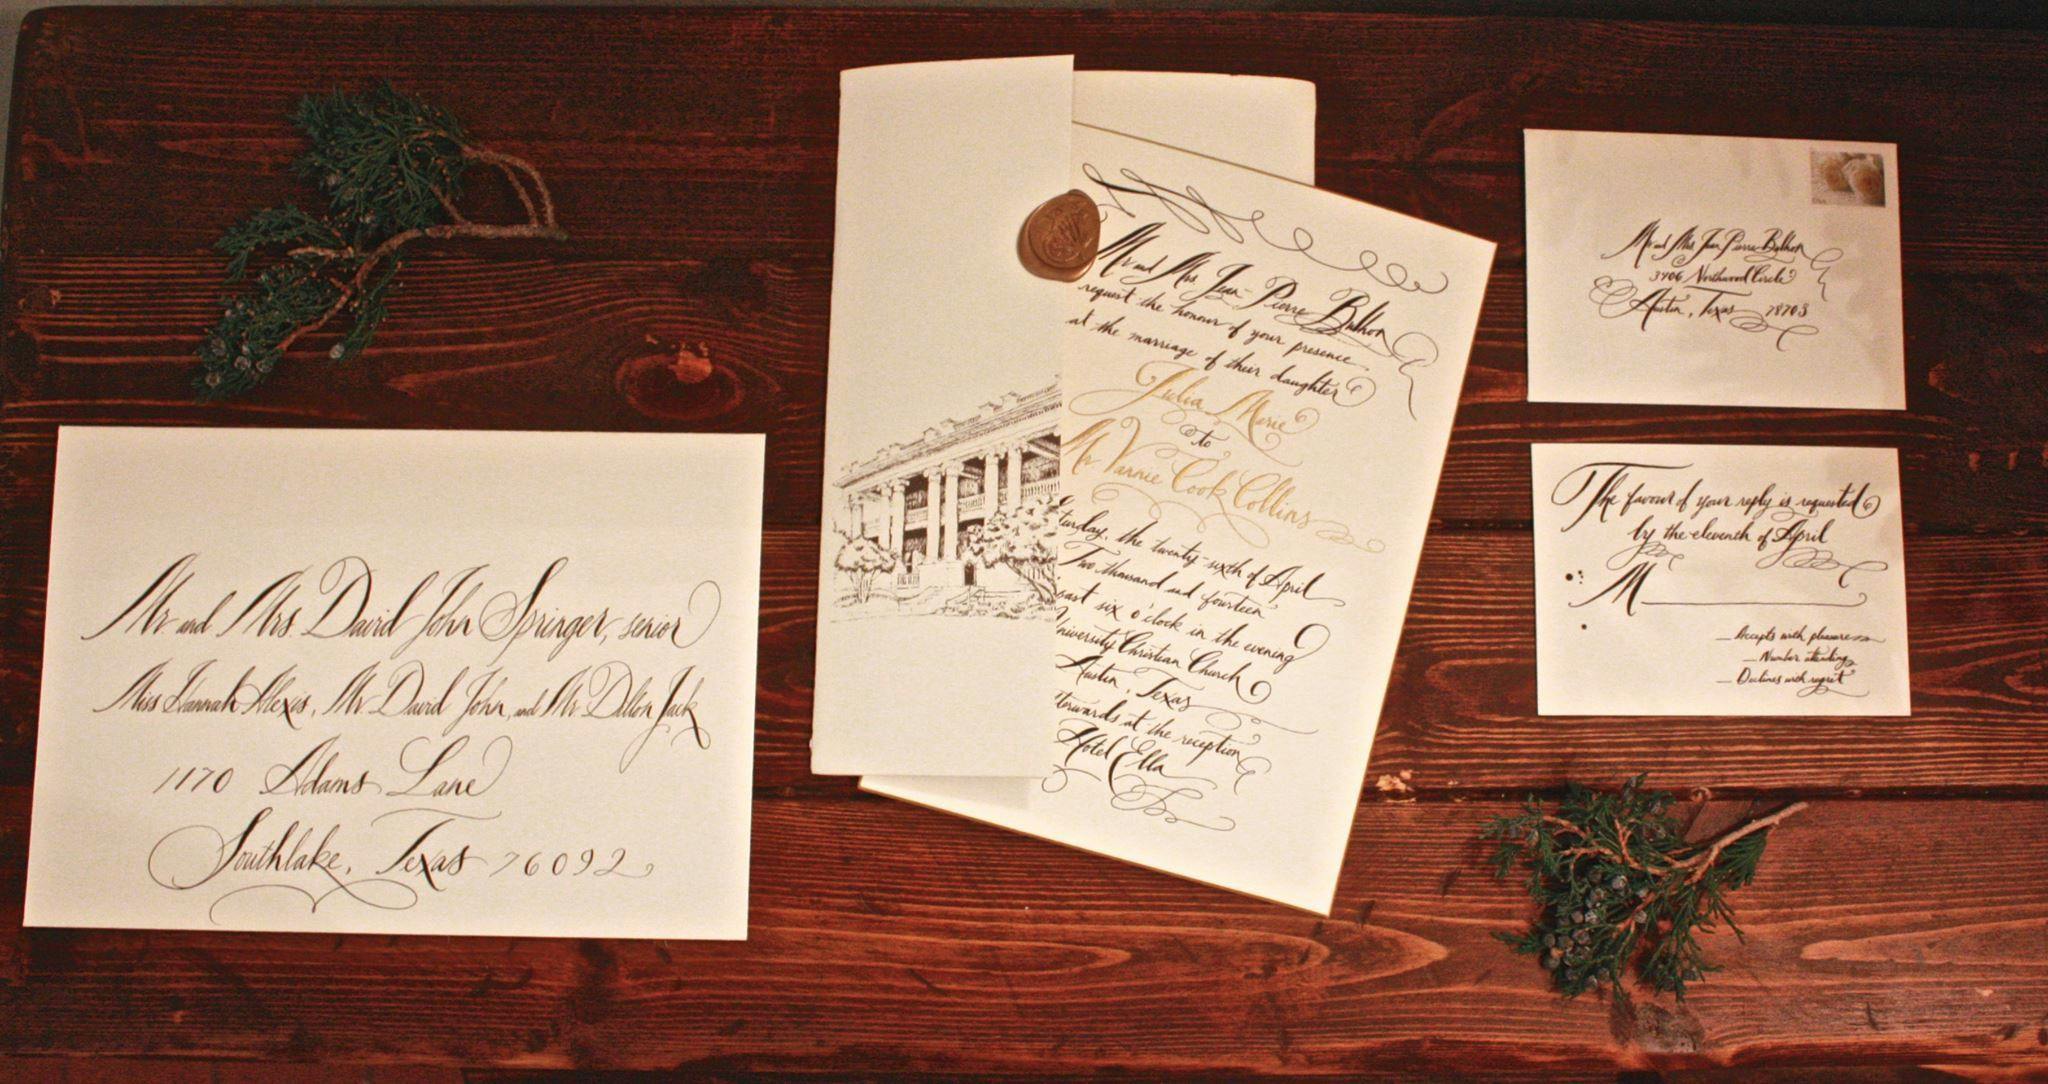 Mr and Mrs. David John Springer, senior
Miss Hannah Alexis, Mr David John, and Mr Dillon Jack
1170 Adams Lane
Southlake, Texas 76092
Mr and Mrs. Jean-Pierre Bulhon
request the honour of your presence
at the marriage of their daughter
Julia Marie
to
Mr Varnie Cook Collins
turday, the twenty-sixth of April
Two thousand and fourteen
past six o'clock in the evening
University Christian Church
Austin, Texas
terwards at the reception
Hotel Ella
Mr and Mrs Jean Pierre Bulhon
3406 Northwood Circle
Austin, Texas 78703
The favour of your reply is requested
by the eleventh of April
M
Accepts with pleasure
Number attending
Declines with regret